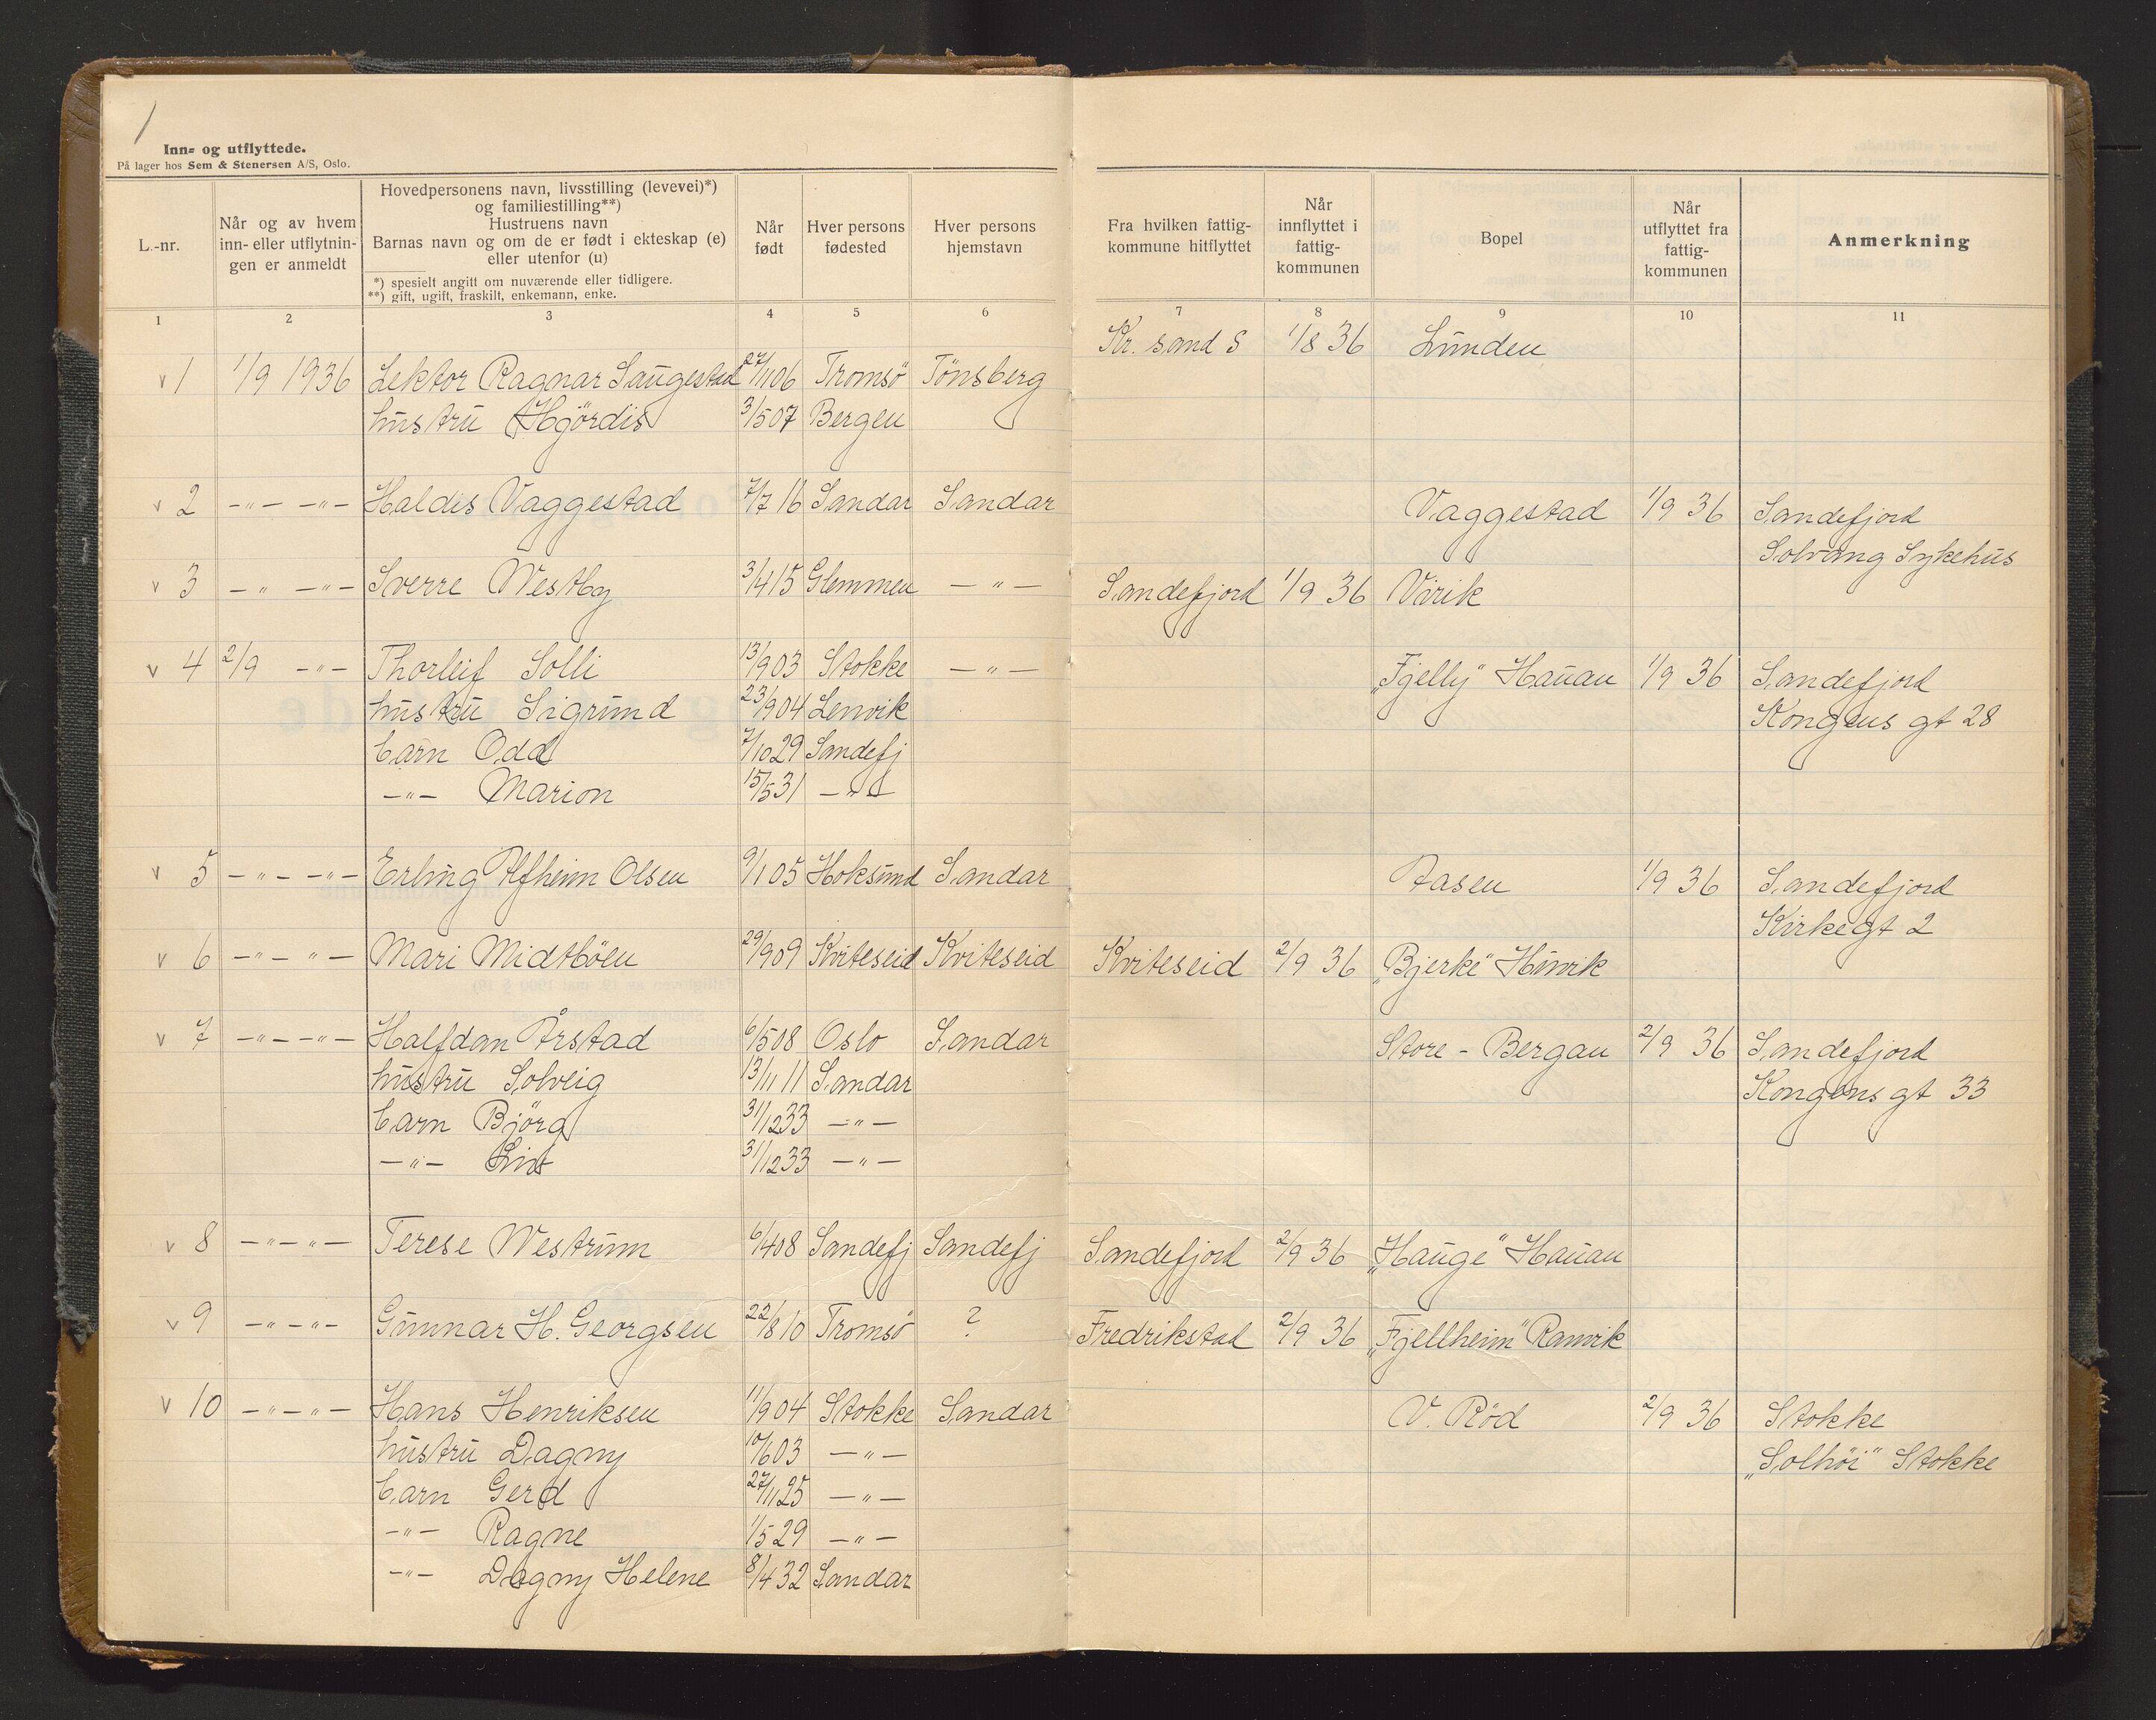 1
Inn- og utflyttede.
På lager hos Sem & Stenersen A/S, Oslo.
L.-nr.
Når og av hvem
inn- eller utflytnin-
gen er anmeldt
Hovedpersonens navn, livsstilling (levevei)*)
og familiestilling**)
Hustruens navn
Barnas navn og om de er født i ekteskap (e)
eller utenfor (u)
*) spesielt angitt om nuværende eller tidligere.
**) gift, ugift, fraskilt, enkemann, enke.
Når
født
Hver persons
fødested
Hver persons
hjemstavn
Fra hvilken fattig-
kommune hitflyttet
Når
innflyttet i
fattig-
kommunen
Bopel
Når
utflyttet fra
fattig-
kommunen
Anmerkning
1 2 3 4 5 6 7 8 9 10 11
Kr. sand S 1/8 36 Lunden
v 1 1/9 1936 Lektor Ragnar Saugestad 27/1106 Tromsö Tönsberg
hustru Hjördis 3/507 Bergen
v 2 -"- -"- Haldis Vaggestad 7/7 16 Sandar Sandar Vaggestad 1/9 36 Sandefjord
Solvang Sykehus
v 3 -"- -"- Sverre Westby 3/415 Glemmen -"- Sandefjord 1/9 36 Virik
v 4 2/9 -"- Thorleif Solli 13/903 Stokke -"- „Fjelly" Hauan 1/9 36 Sandefjord
hustru Sigrund 23/904 Lenvik Kongens gt 28
barn Odd 7/1029 Sandefj
-"- Marion 15/531 -"-
v 5 -"- -"- Erling Alfheim Olsen 9/105 Hoksund Sandar Aasen 1/9 36 Sandefjord
Kirkegt 2
v 6 -"- -"- Mari Midtböen 29/909 Kviteseid Kviteseid Kviteseid 2/9 36 „Bjerke" Hinvik
v 7 -"- -"- Halfdan Årstad 6/508 Oslo Sandar Store - Bergan 2/9 36 Sandefjord
hustru Solveig 13/11 11 Sandar Kongens gt 33
barn Björg 31/1233 -"-
-"- Liv 31/1233 -"-
v 8 -"- -"- Terese Westrum 6/408 Sandefj Sandefj Sandefjord 2/9 36 „Hauge" Hauan
v 9 -"- -"- Gunnar H. Georgsen 22/810 Tromsö ? Fredrikstad 2/9 36 „Fjellheim" Ranvik
v 10 -"- -"- Hans Henriksen 11/904 Stokke Sandar V. Röd 2/9 36 Stokke
hustru Dagny 10/603 -"- „Solhöi" Stokke
barn Gerd 27/1125 -"-
-"- Ragne 1/529 -"-
-"- Dagny Helene 8/432 Sandar